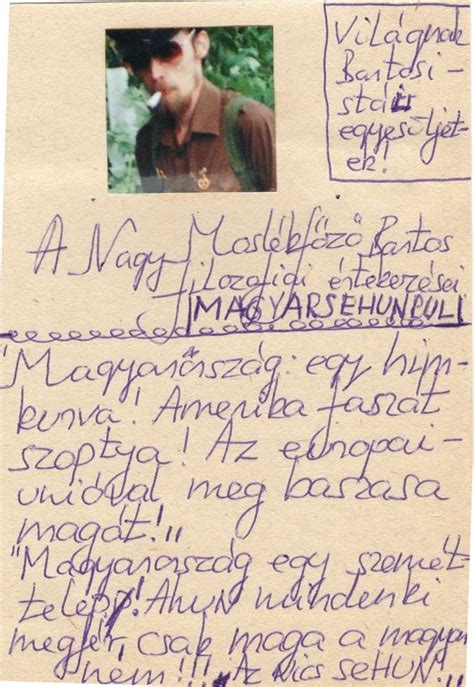 Világnak
Bartosi-
stái
egyesüljet-
ek!
A Nagy Moslékfőző Bartos
filozofiai értekezései
MAGYARSEHUNBUL
"Magyarország: egy him-
kurva! Amerika faszát
szoptya! Az europai-
unióval meg baszasa
magát!,,
"Magyarország egy szemét-
telepp! Ahun mindenki
megér, csak maga a magyar
nem!!! Az nics seHUN!,,